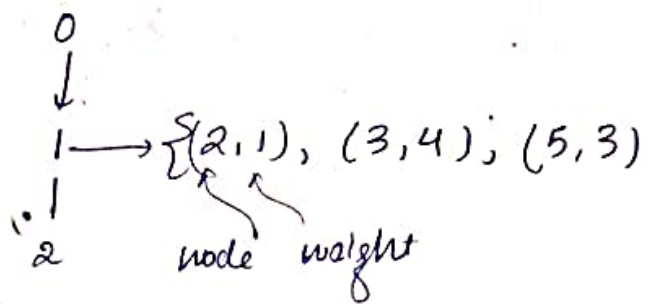 0
1 → {(2,1), (3,4); (5,3)
2
node weight